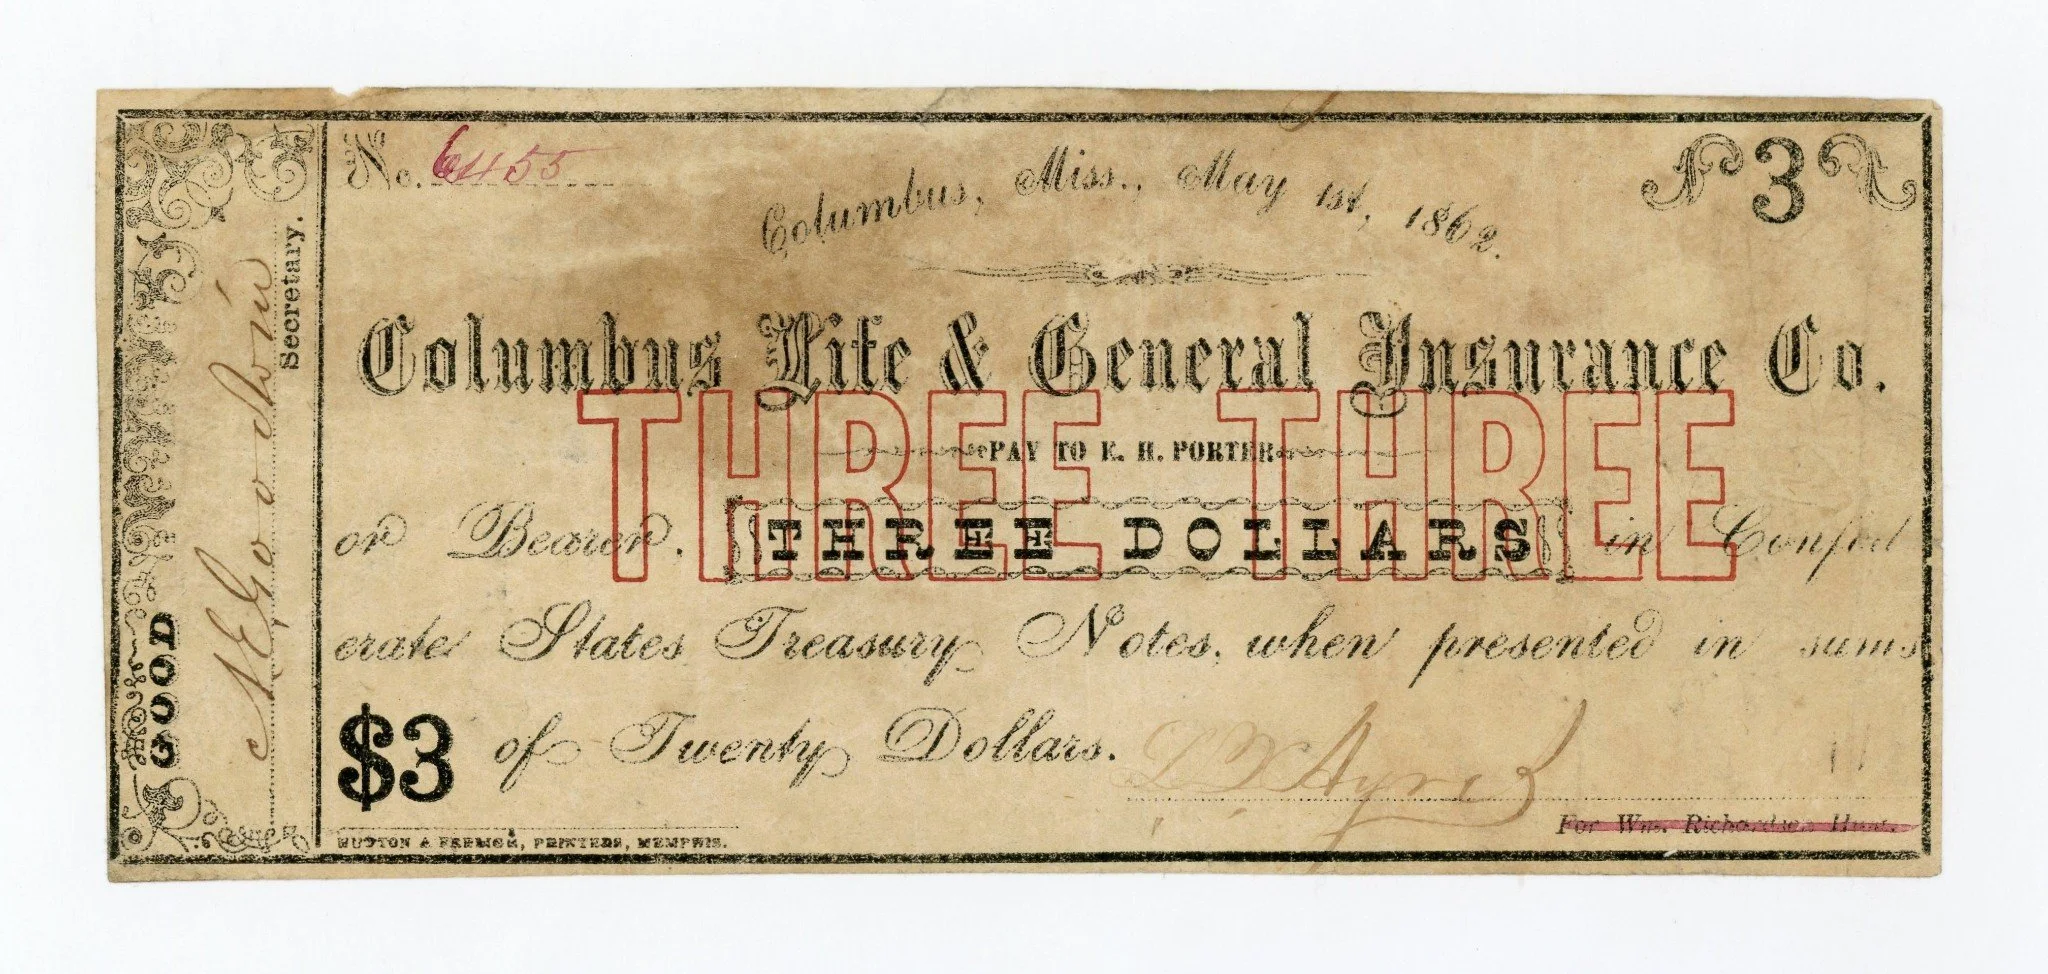 No. 6455
Columbus, Miss., May 1st, 1862.
3
Columbus Life & General Insurance Co.
THREE THREE
PAY TO K. H. PORTER
or Bearer, THREE DOLLARS in Confed
erate States Treasury Notes, when presented in sums
$3 of Twenty Dollars.
For Wm. Richardson Hunt.
HUTTON & FREMCH, PRINTERS, MEMPHIS.
GOOD
Secretary.